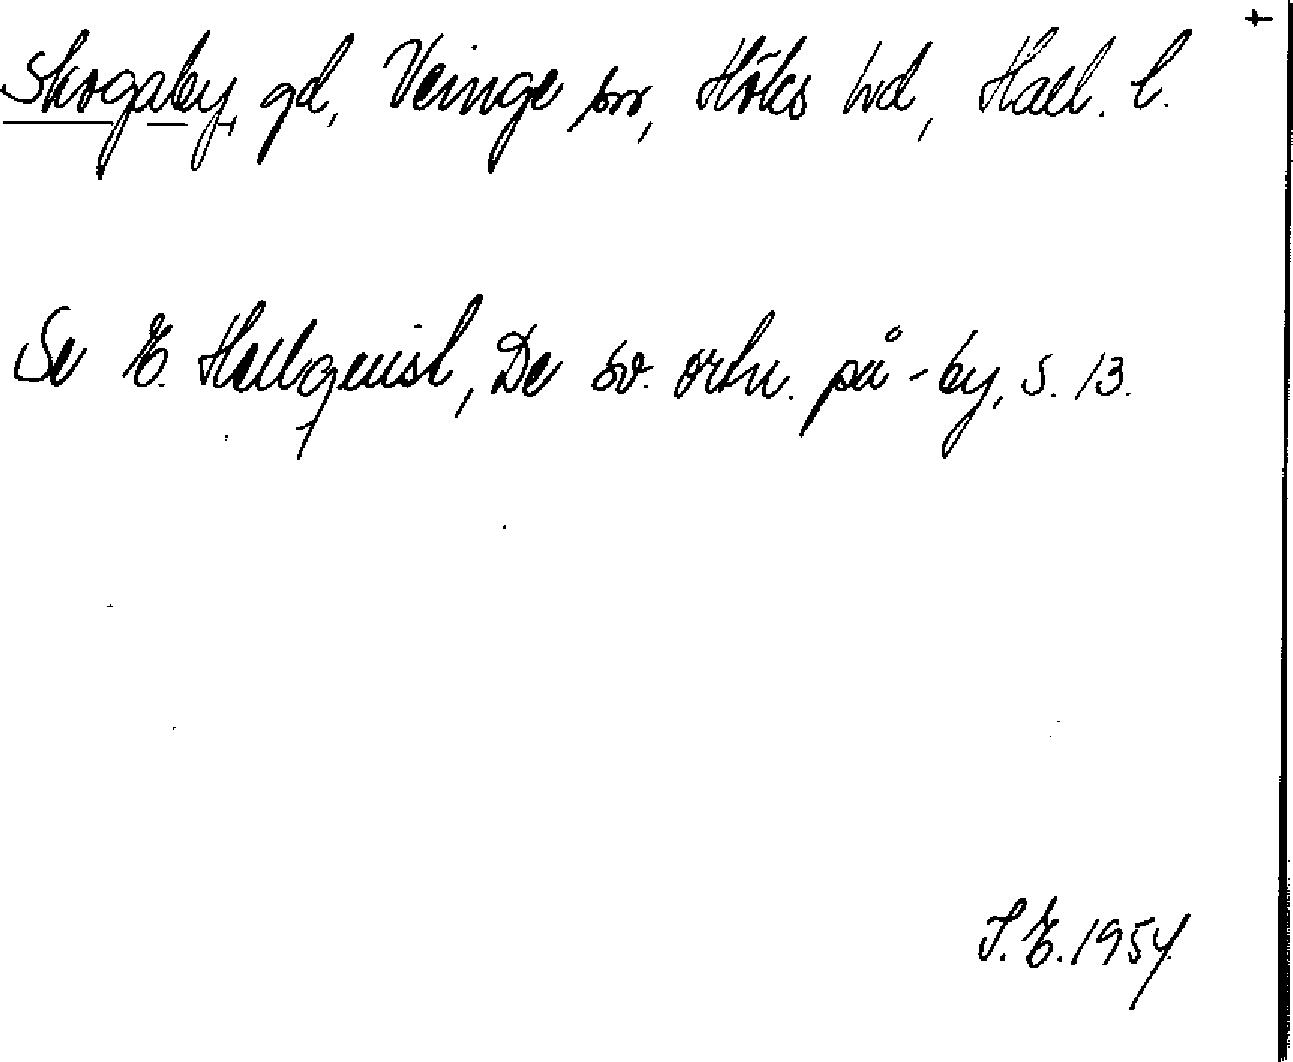 Skogaby, gd, Veinge sn, Höks hd, Hall. l.
Se E. Hellquist, De sv. ortn. på -by, s. 13.
S.E. 1954